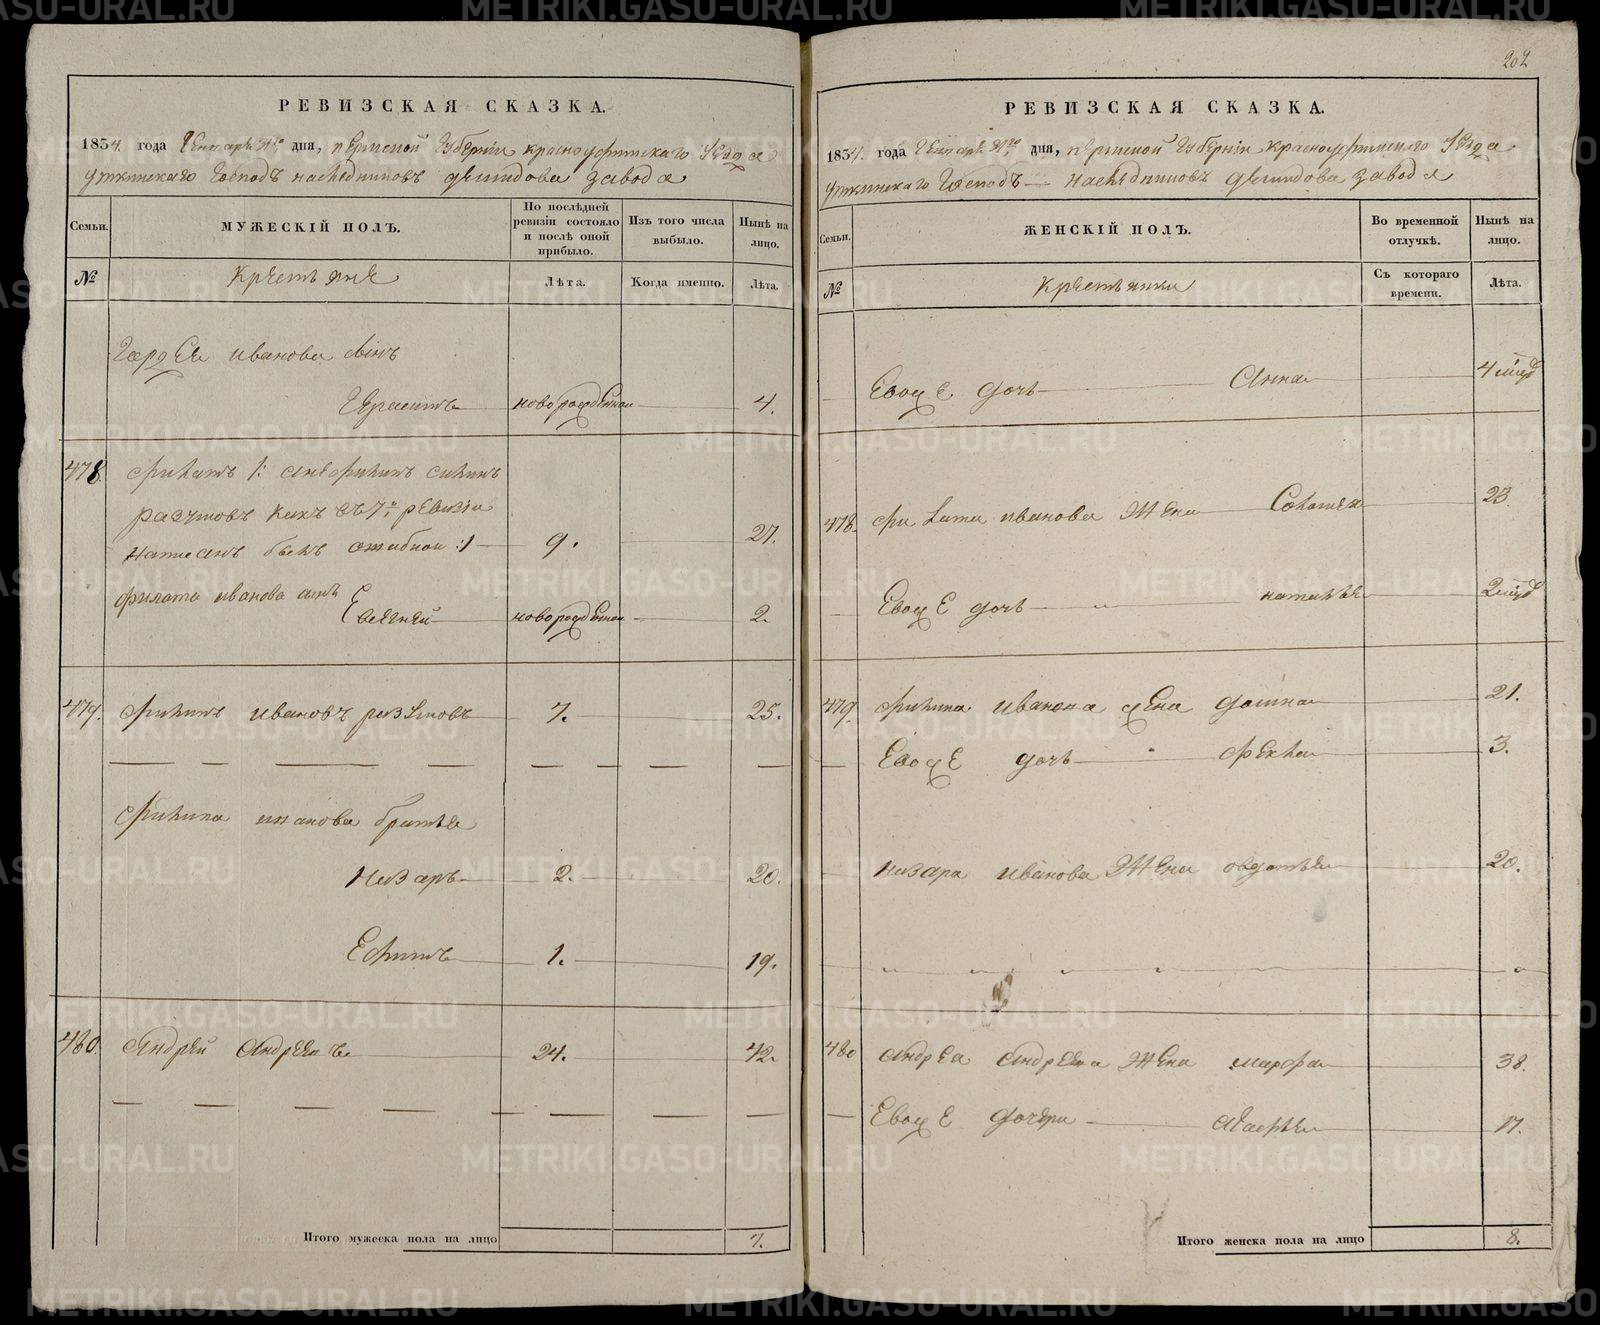 РЕВИЗСКАЯ СКАЗКА.
1834. года Генваря дня, пермской Губерніи красноуфимскаго Уѣзда
уткинскаго Господъ наслѣдниковъ демидова завода
Семьи.
МУЖЕСКІЙ ПОЛЪ.
По послѣдней ревизіи состояло и послѣ оной прибыло.
Изъ того числа выбыло.
Нынѣ на лицо.
№
Крестьяне
Лѣта.
Когда именно.
Лѣта.
Гордея иванова сынъ
Герасимъ новорожденной 4.
478.
ревизіи
написанъ ошибкой :/ 9. 27.
филата иванова сынъ
Евсегней новорожденной 2.
479. Филипъ ивановъ разумовъ 7. 25.
Филипа иванова братья
Назаръ 2. 20.
Ефимъ 1. 19.
480. Андрей Андреевъ 24. 42.
Итого мужеска пола на лицо 7.
202
РЕВИЗСКАЯ СКАЗКА.
1834. года Генваря дня, пермской Губерніи Красноуфимскаго Уѣзда
уткинскаго Господъ наслѣдниковъ демидова завода
Семьи.
ЖЕНСКІЙ ПОЛЪ.
Во временной отлучкѣ.
Нынѣ на лицо.
№
Крестьянки
Съ котораго времени.
Лѣта.
Евож Е дочь Анна 4
478. Филата иванова жена Соломея 23.
Евож Е дочь наталья 2
479. Филипа иванова жена домна 21.
Евож Е дочь Фекла 3.
Назара иванова жена овдотья 20.
480 Андрея Андреева жена марфа 38.
Евож Е дочери 17.
Итого женска пола на лицо 8.
METRIKI.GASO-URAL.RU